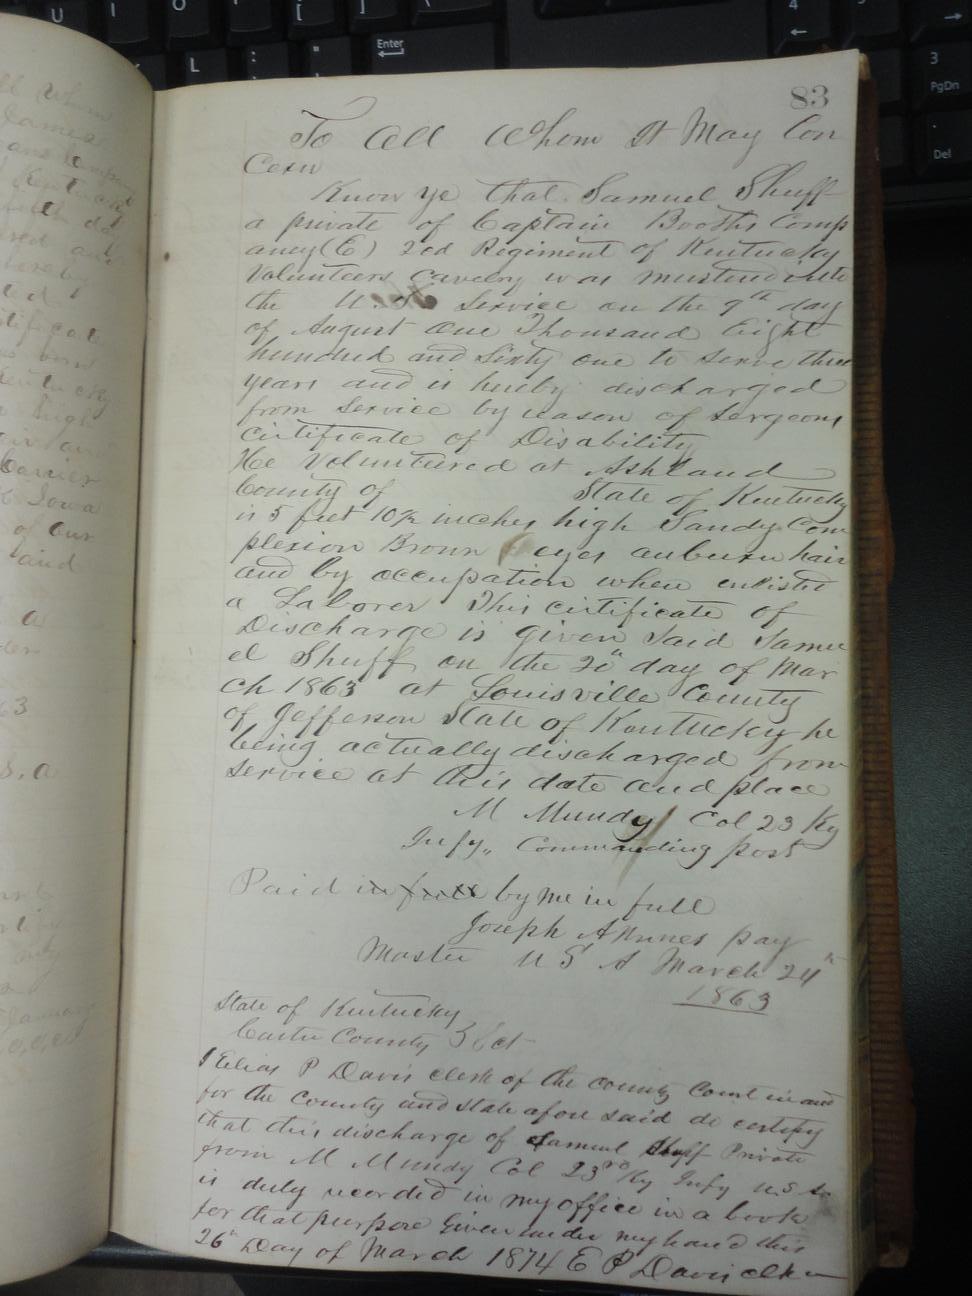 83
To All Whom It May Con
Cern
Know ye that Samuel Shuff
a private of Captain Booths Comp
any (E) 2cd Regiment of Kentucky
Volunteers Cavelry was mustered into
the U. S. Service on the 9th day
of August One Thousand Eight
hundred and Sixty one to serve three
years and is hereby discharged
from service by reason of Sergeons
Certificate of Disability
He Volunteered at Ashland
County of State of Kentucky
is 5 feet 10½ inches high Sandy Com
plexion Brown eyes auburn hair
and by occupation when enlisted
a Laborer This certificate of
Discharge is given Said Samu
el Shuff on the 20" day of Mar
ch 1863 at Louisville County
of Jefferson State of Kentucky he
being actually discharged from
service at this date and place
M Mundy Col 23 Ky
Infy,, Commanding post
Paid in full by me in full
Joseph pay
Master U S A March 24th
1863
State of Kentucky
Carter County Sct
I Elias P Davis clerk of the county Court in and
for the County and State afore said do certify
that this discharge of Samuel Shuff Private
from M Mundy Col 23rd Ky Infy U.S.
is duly recorded in my office in a book
for that purpose Given under my hand this
26" Day of March 1874 E P Davis clk
whom
James
Iowa
of our
said
a
63
S. a
January